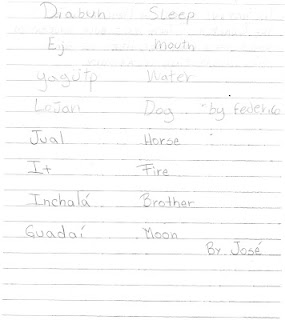 Diabun Sleep
Ej mouth
yaguip Water
Lojan Dog "by federico
Jual Horse
It Fire
Inchalá Brother
Guadaí Moon
By José